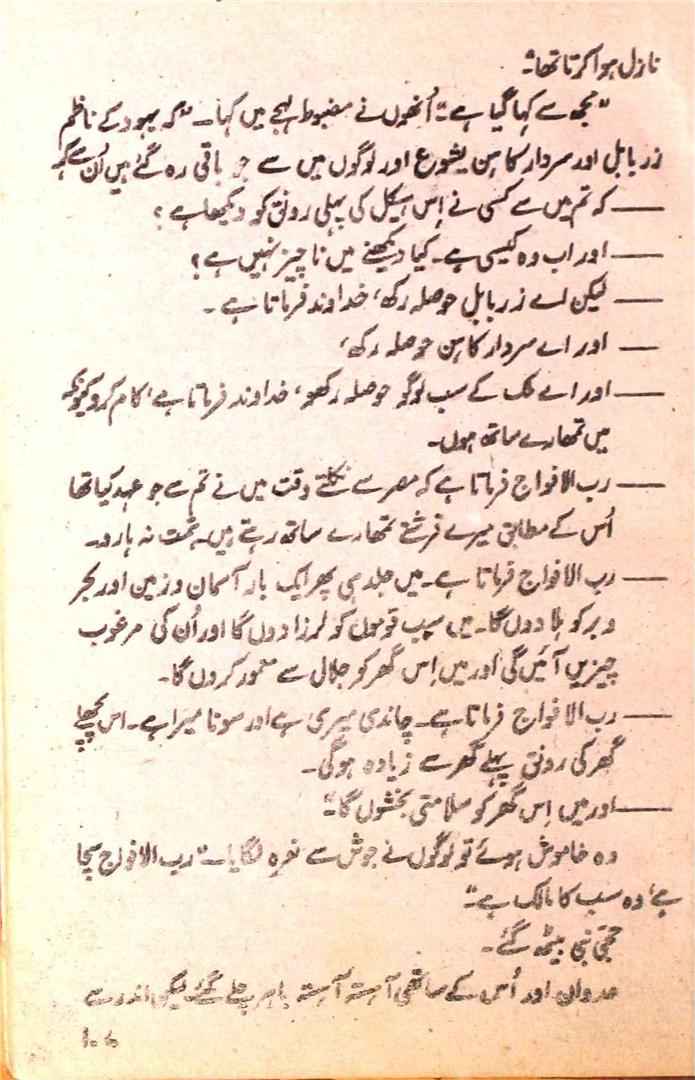 نازل ہوا کرتا تھا۔"
"مجھ سے کہا گیا ہے" اُنھوں نے مضبوط لہجے میں کہا۔ "کہ یہود کے ناظم
زربابل اور سردار کاہن یشوع اور لوگوں میں سے جو باقی رہ گئے ہیں اُن سے کہہ
—— کہ تم میں سے کسی نے اِس ہیکل کی پہلی رونق کو دیکھا ہے؟
—— اور اب وہ کیسی ہے۔ کیا دیکھنے میں ناچیز نہیں ہے؟
—— لیکن اے زربابل حوصلہ رکھ، خداوند فرماتا ہے۔
—— اور اے سردار کاہن حوصلہ رکھ،
—— اور اے ملک کے سب لوگو حوصلہ رکھو، خداوند فرماتا ہے، کام کرو کیونکہ
میں تمھارے ساتھ ہوں۔
—— رب الافواج فرماتا ہے کہ مصر سے نکلتے وقت میں نے تم سے جو عہد کیا تھا
اُس کے مطابق میرے فرشتے تمھارے ساتھ رہتے ہیں۔ ہمت نہ ہارو۔
—— رب الافواج فرماتا ہے۔ میں جلد ہی پھر ایک بار آسمان و زمین اور بحر
و بر کو ہلا دوں گا۔ میں سب قوموں کو لرزا دوں گا اور اُن کی مرغوب
چیزیں آئیں گی اور میں اِس گھر کو جلال سے معمور کروں گا۔
—— رب الافواج فرماتا ہے۔ چاندی میری ہے اور سونا میرا ہے۔ اس پچھلے
گھر کی رونق پہلے گھر سے زیادہ ہوگی۔
—— اور میں اِس گھر کو سلامتی بخشوں گا۔"
وہ خاموش ہوئے تو لوگوں نے جوش سے نعرہ لگایا۔ "رب الافواج سچا
ہے، وہ سب کا مالک ہے۔"
حجّی نبی بیٹھ گئے۔
عدوان اور اُس کے ساتھی آہستہ آہستہ باہر چلے گئے لیکن اندر سے
۱۰۶